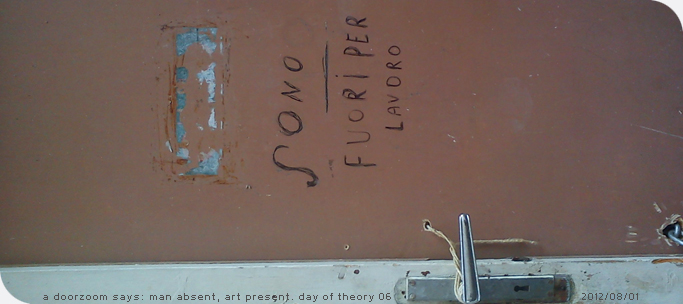 SONO
FUORI PER
LAVORO
a doorzoom says: man absent, art present. day of theory 06
2012/08/01